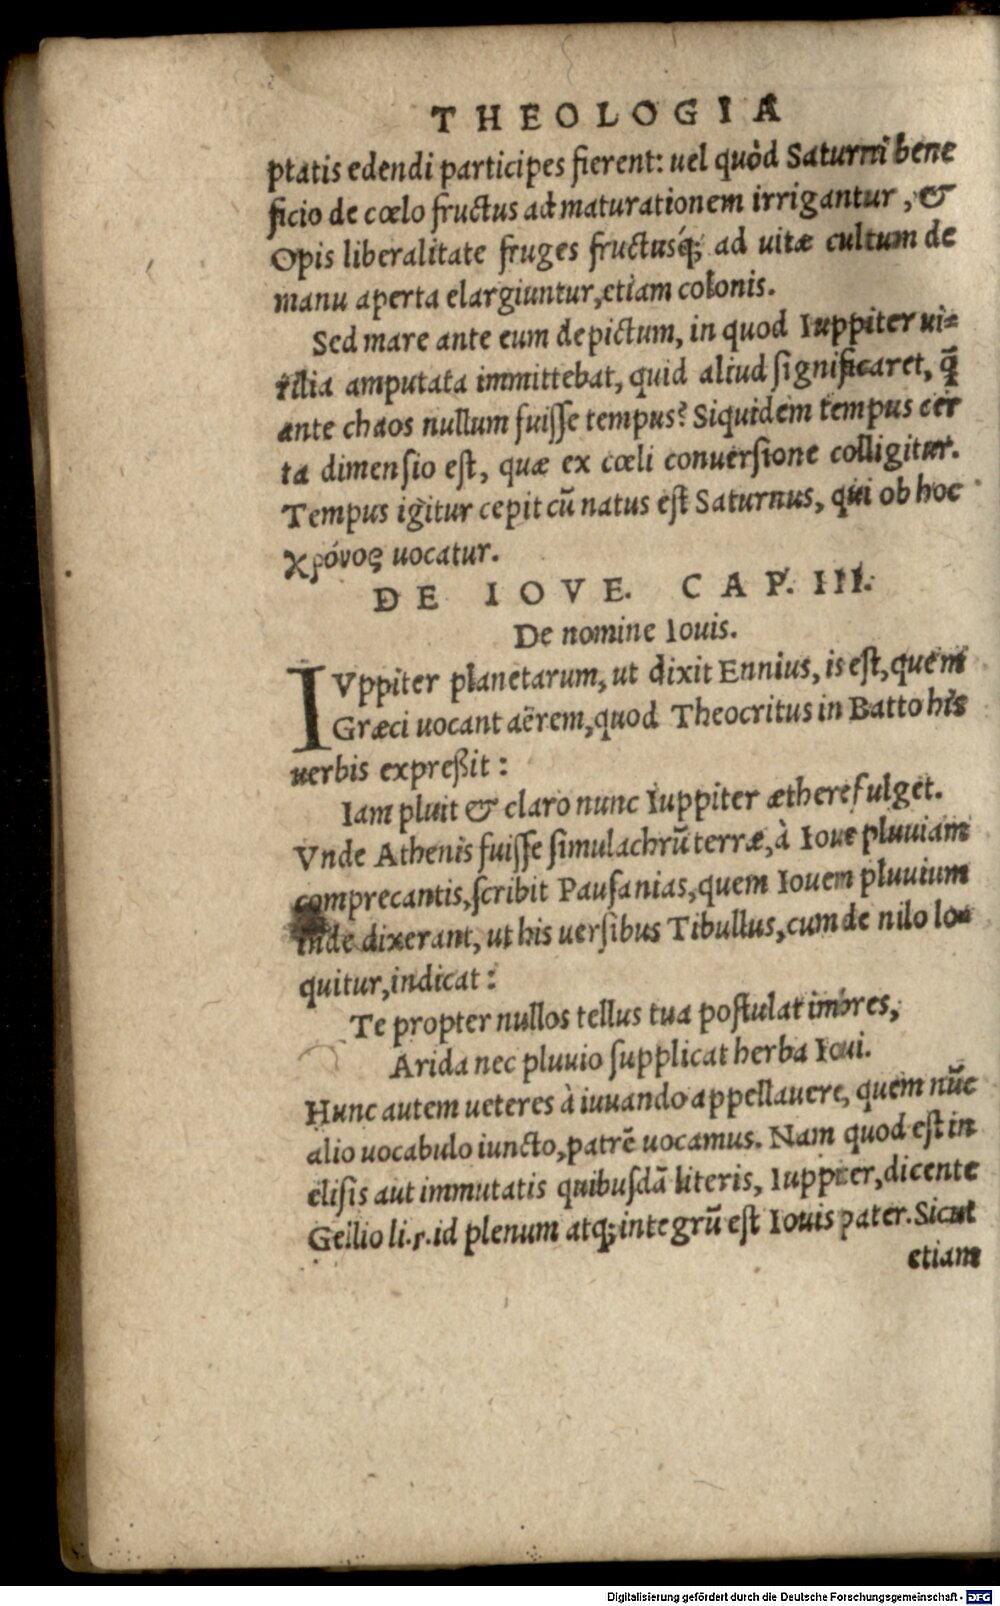 THEOLOGIA
ptatis edendi participes fierent: uel quòd Saturni bene
ficio de cœlo fructus ad maturationem irrigantur, &
Opis liberalitate fruges fructusq́; ad uitæ cultum de
manu aperta elargiuntur, etiam colonis.
Sed mare ante eum depictum, in quod Iuppiter ui=
rilia amputata immittebat, quid aliud significaret, q̄
ante chaos nullum fuisse tempus? Siquidem tempus cer
ta dimensio est, quæ ex cœli conuersione colligitur.
Tempus igitur cepit cū natus est Saturnus, qui ob hoc
χρόνος uocatur.
DE IOVE. CAP. III.
De nomine Iouis.
IVppiter planetarum, ut dixit Ennius, is est, quem
Græci uocant aërem, quod Theocritus in Batto his
uerbis expreßit:
Iam pluit & claro nunc Iuppiter æthere fulget.
Vnde Athenis fuisse simulachrū terræ, à Ioue pluuiam
comprecantis, scribit Pausanias, quem Iouem pluuium
inde dixerant, ut his uersibus Tibullus, cum de nilo lo=
quitur, indicat:
Te propter nullos tellus tua postulat imbres,
Arida nec pluuio supplicat herba Ioui.
Hunc autem ueteres à iuuando appellauere, quem nūc
alio uocabulo iuncto, patrē uocamus. Nam quod est in
elisis aut immutatis quibusdā literis, Iuppiter, dicente
Gellio li.5.id plenum atq; integrū est Iouis pater. Sicut
etiam
Digitalisierung gefördert durch die Deutsche Forschungsgemeinschaft - DFG